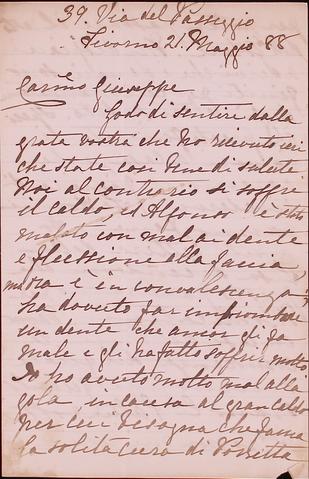 39. Via del Passeggio
Livorno 21. Maggio 88
Carmo Giuseppe
Godo di sentire dalla
grata vostra che ho ricevuto ieri
che state così bene di salute
Noi al contrario si soffre
il caldo, ed Alfonso è stato
malato con mal ai denti
e flussione alla faccia,
ora è in convalescenza
ha dovuto far impiombare
un dente che ancor gli fa
male e gli ha fatto soffrir molto
Io ho avuto molto mal alla
gola, in causa al gran caldo
per cui bisogna che faccia
la solita cura di Poretta